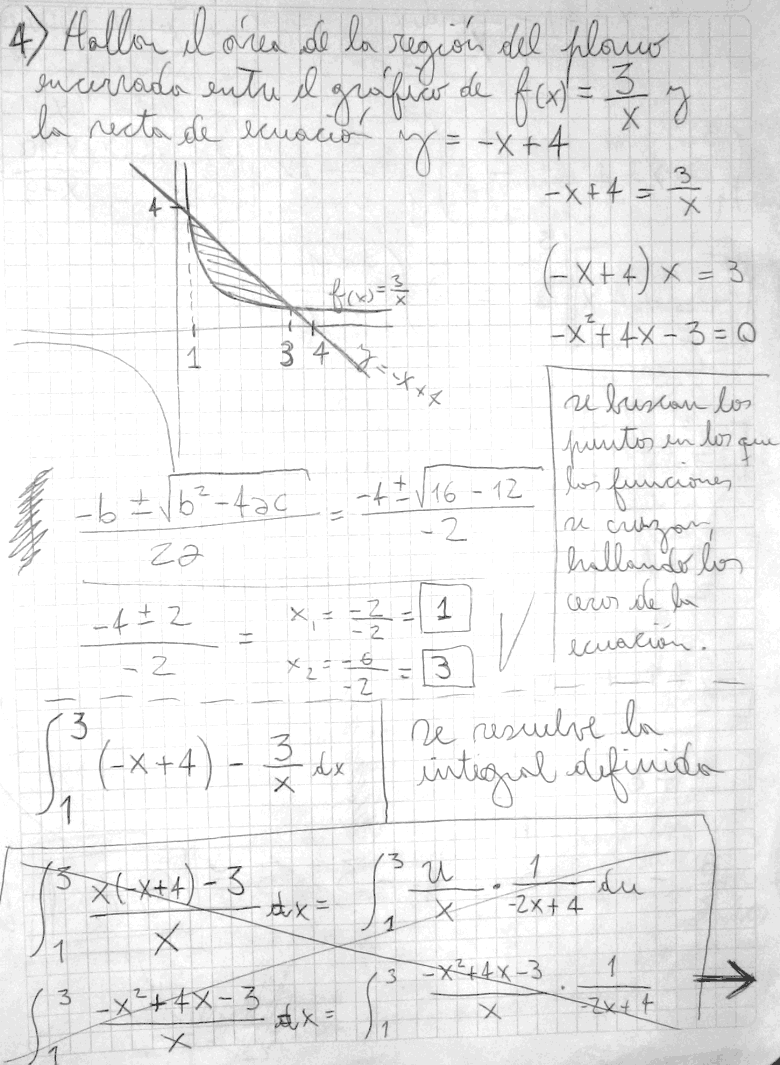 4) Hallar el área de la región del plano
encerrada entre el gráfico de f(x) = 3/x y
la recta de ecuación y = -x+4
-x+4 = 3/x
(-x+4)x = 3
-x²+4x-3=0
4
f(x)=3/x
1 3 4
y=-x
se buscan los
puntos en los que
las funciones
se cruzan,
hallando los
ceros de la
ecuación.
-b ± √(b²-4ac) / 2a = -4 ± √(16-12) / -2
-4 ± 2 / -2 =
x₁ = -2/-2 = 1
x₂ = -6/-2 = 3
∫₁³ (-x+4) - 3/x dx
se resuelve la
integral definida
∫₁³ x(-x+4)-3 / x dx = ∫₁³ u/x · 1/-2x+4 du
∫₁³ -x²+4x-3 / x dx = ∫₁³ -x²+4x-3 / x · 1/-2x+4